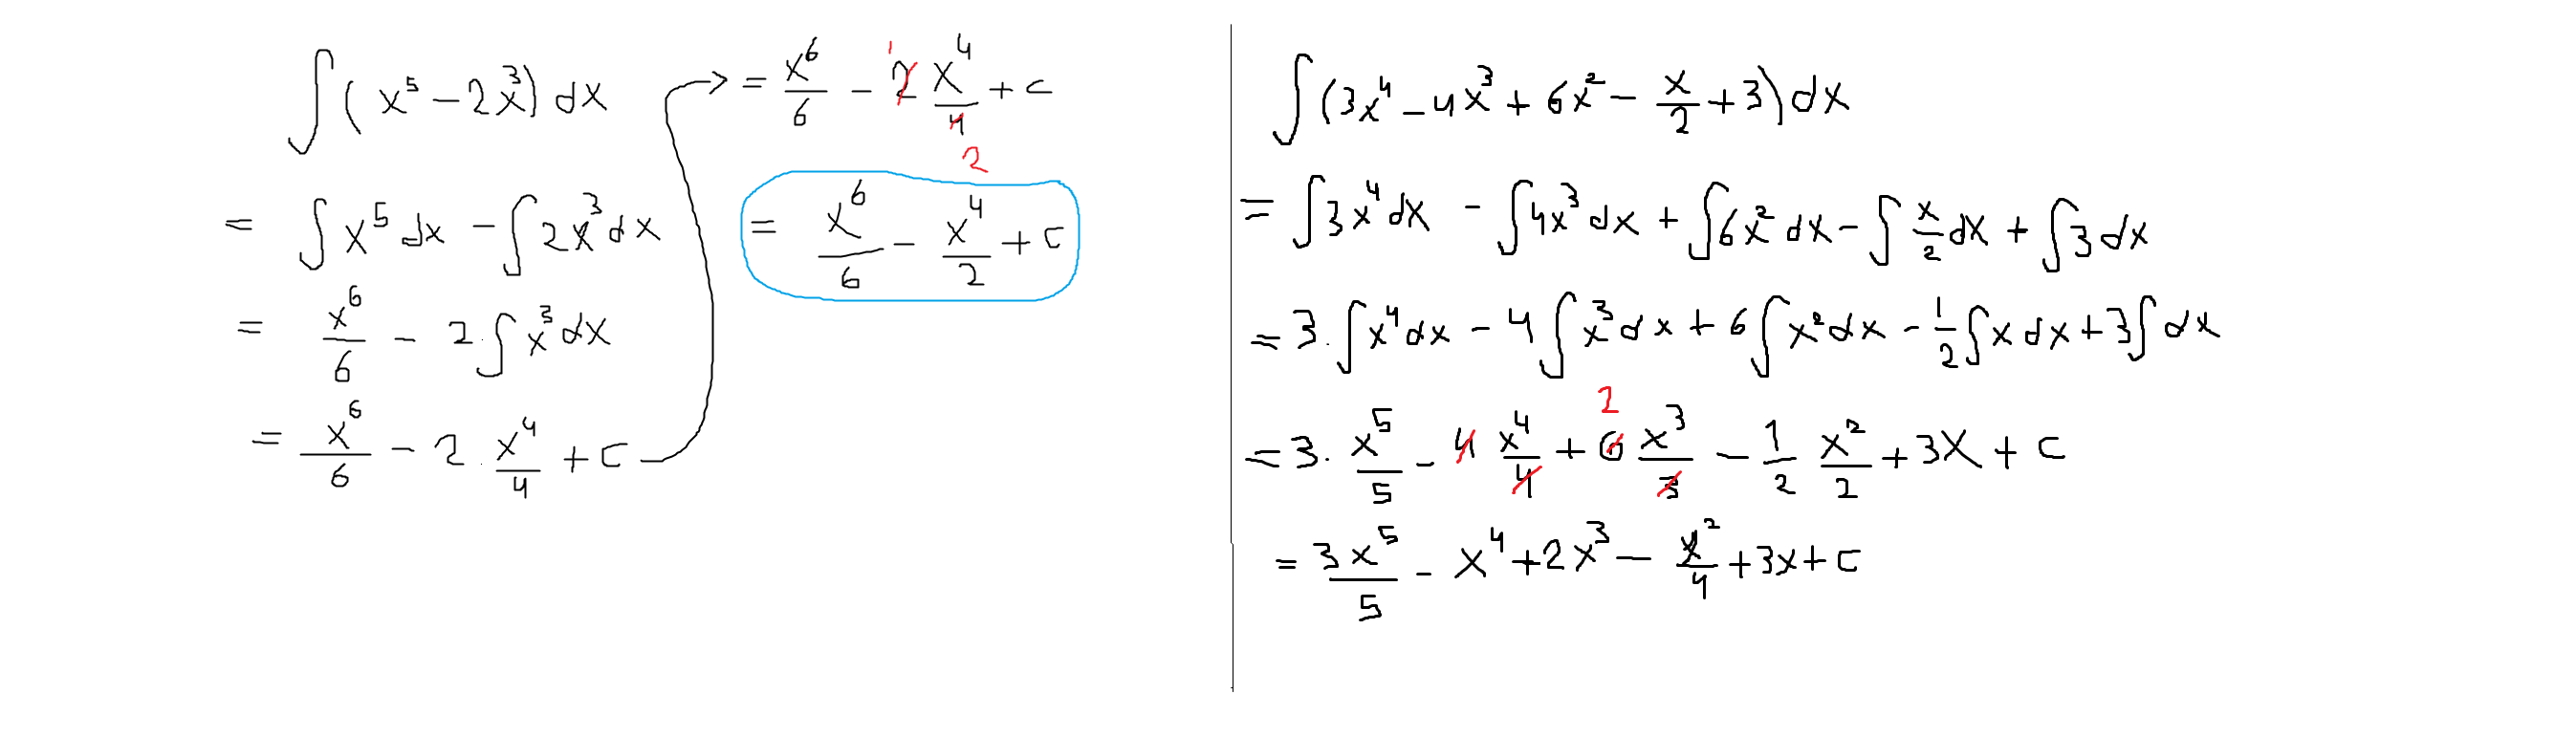 ∫(x⁵ − 2x³) dx
= ∫x⁵ dx − ∫2x³ dx
= x⁶/6 − 2.∫x³ dx
= x⁶/6 − 2.x⁴/4 + c →
= x⁶/6 − 2 x⁴/4 + c
1
2
= x⁶/6 − x⁴/2 + c
∫(3x⁴ − 4x³ + 6x² − x/2 + 3) dx
= ∫3x⁴ dx − ∫4x³ dx + ∫6x² dx − ∫x/2 dx + ∫3 dx
= 3.∫x⁴ dx − 4∫x³ dx + 6∫x² dx − 1/2 ∫x dx + 3∫dx
2
= 3. x⁵/5 − 4 x⁴/4 + 6 x³/3 − 1/2 x²/2 + 3x + c
= 3x⁵/5 − x⁴ + 2x³ − x²/4 + 3x + c